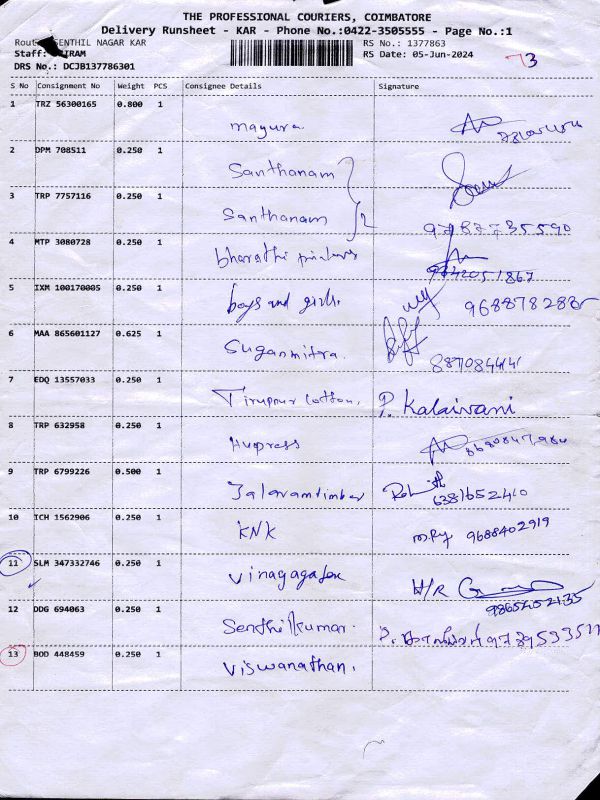 THE PROFESSIONAL COURIERS, COIMBATORE
Delivery Runsheet - KAR - Phone No.:0422-3505555 - Page No.:1
SENTHIL NAGAR KAR RS No.: 1377863
Staff: RS Date: 05-Jun-2024
DRS No.: DCJB137786301
S No Consignment No Weight PCS Consignee Details Signature
1 TRZ 56300165 0.800 1
mayura
2 DPM 708511 0.250 1
Santhanam
3 TRP 7757116 0.250 1
Santhanam 9787735590
4 MTP 3080728 0.250 1
bharathi printers 9842051867
5 IXM 100170005 0.250 1
boys and girls.
6 MAA 865601127 0.625 1
Suganmitra.
7 EDQ 13557033 0.250 1
Tiruppur Cotton. P. Kalaivani
8 TRP 632958 0.250 1
9 TRP 6799226 0.500 1
Jalaramtimber
10 ICH 1562906 0.250 1
KNK 9688402919
11 SLM 347332746 0.250 1
H/R
9865402135
12 DDG 694063 0.250 1
Senthilkumar.
13 BOD 448459 0.250 1
Viswanathan.